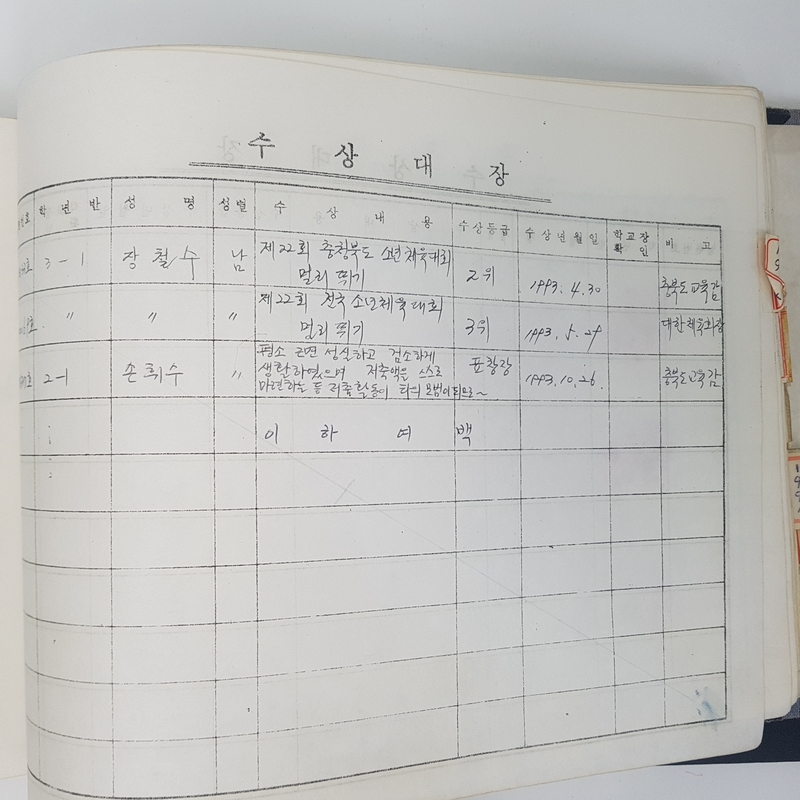 수 상 대 장
학 년 반 성 명 성별 수 상 내 용 수상등급 수 상 년 월 일 학교장 확 인 비 고
3-1 장철수 남 제22회 충청북도 소년체육대회 2위 1993. 4. 30 충북도교육감
멀리 뛰기
〃 〃 제22회 전국 소년체육대회 3위 1993. 5. 29 대한체육회장
멀리 뛰기
2-1 손휘수 〃 평소 근면 성실하고 검소하게 표창장 1993. 10. 26. 충북도교육감
생활하였으며 저축액을 스스로
마련하는 등 저축활동이 타의 모범이 되므로~
이 하 여 백